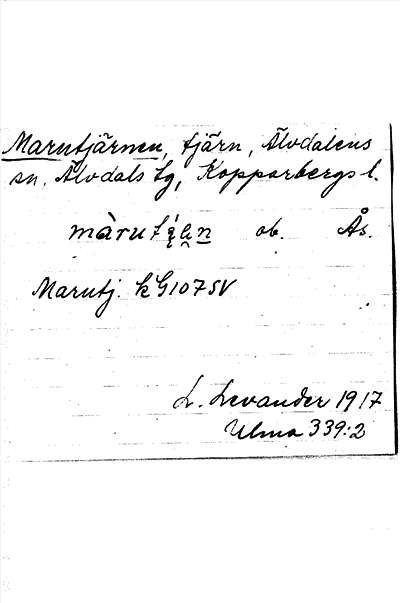 Marutjärnen, tjärn, Älvdalens
sn. Älvdals tg, Kopparbergs l.
ob. Ås.
Marutj. kG107SV
L. Levander 1917
Ulma 339:2